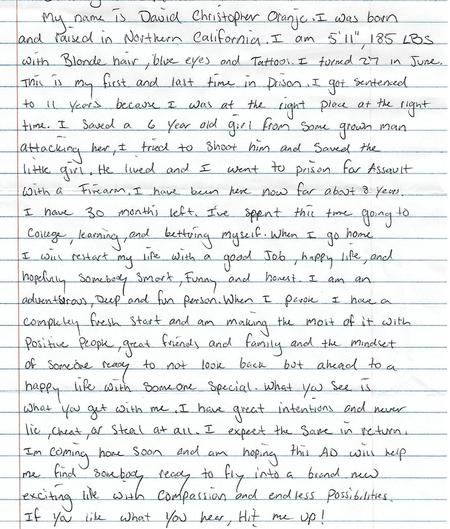 My name is David Christopher Oranje. I was born
and raised in Northern California. I am 5'11", 185 LBS
with Blonde hair, blue eyes and Tattoos. I turned 27 in June.
This is my first and last time in Prison. I got sentenced
to 11 years because I was at the right place at the right
time. I saved a 6 year old girl from some grown man
attacking her, I tried to shoot him and saved the
little girl. He lived and I went to prison for Assault
with a Firearm. I have been here now for about 8 years.
I have 30 months left. I've spent this time going to
College, learning, and bettring myself. When I go home
I will restart my life with a good Job, happy life, and
hopefully somebody smart, funny and honest. I am an
adventurous, Deep and fun person. When I parole I have a
completely fresh start and am making the most of it with
Positive People, great friends and family and the mindset
of someone ready to not look back but ahead to a
happy life with someone special. What you see is
what you get with me. I have great intentions and never
lie, cheat, or steal at all. I expect the same in return.
Im coming home soon and am hoping this AD will help
me find somebody ready to fly into a brand new
exciting life with compassion and endless possibilities.
If you like what you hear, Hit me up!